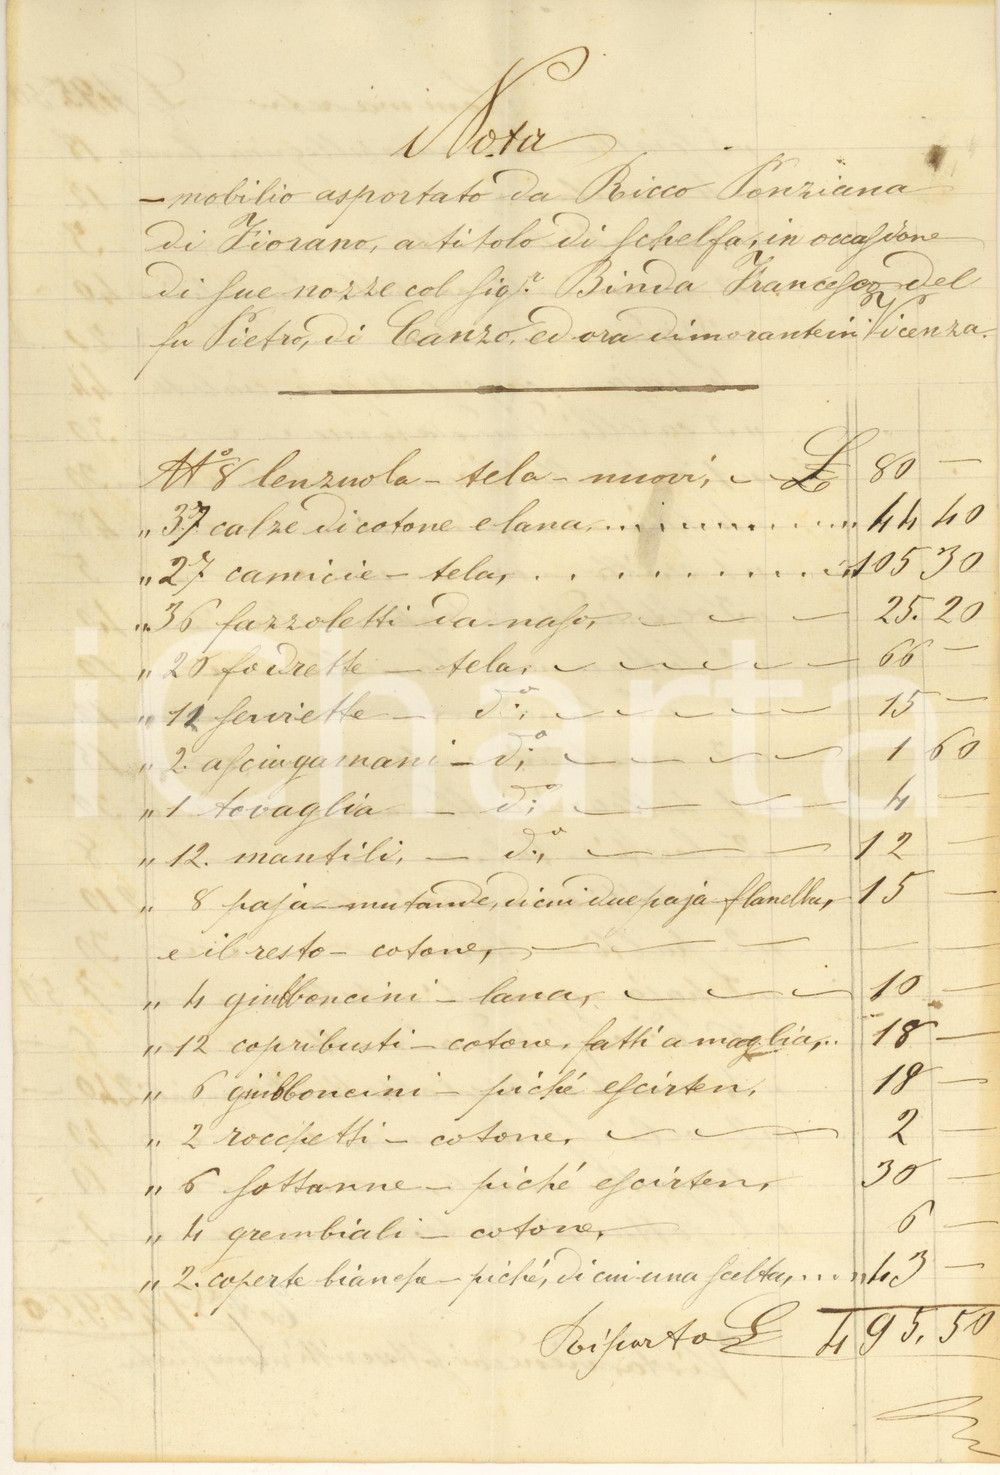 Nota
– mobilio asportato da Ricco Ponziana
di Fiorano, a titolo di schelfa, in occasione
di sue nozze col sigr. Binda Francesco del
fu Pietro, di Canzo, ed ora dimorante in Vicenza.
No 8 lenzuola – tela – nuovi, L 80 –
" 37 calze di cotone e lana " 44 40
" 27 camicie – tela, " 105 30
" 36 fazzoletti da naso, 25. 20
" 26 fodrette – tela, 66 –
" 11 serviette – do, 15 –
" 2 asciugamani – do 1 60
" 1 tovaglia – do 4 –
" 12. mantili, – do, 12 –
" 8 paja – mutande, di cui due paja flanella, 15 –
e il resto – cotone, –
" 4 giubboncini – lana, 10 –
" 12 copribusti – cotone, fatti a maglia, 18 –
" 6 giubboncini – piché e scirten, 18 –
" 2 rocchetti – cotone, 2 –
" 6 sottanne – piché e scirten, 30 –
" 4 grembiali – cotone, 6 –
" 2. coperte bianche – piché, di cui una scelta, " 43 –
Riporto L 495. 50
iCharta